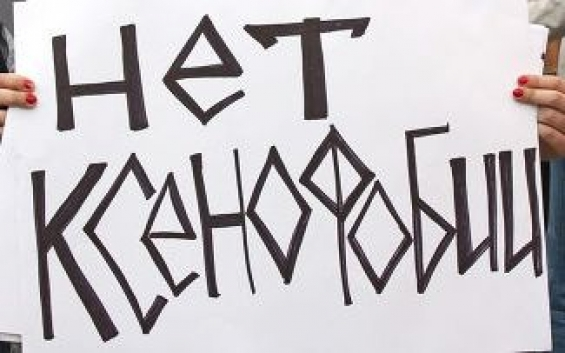 нет
ксенофобии